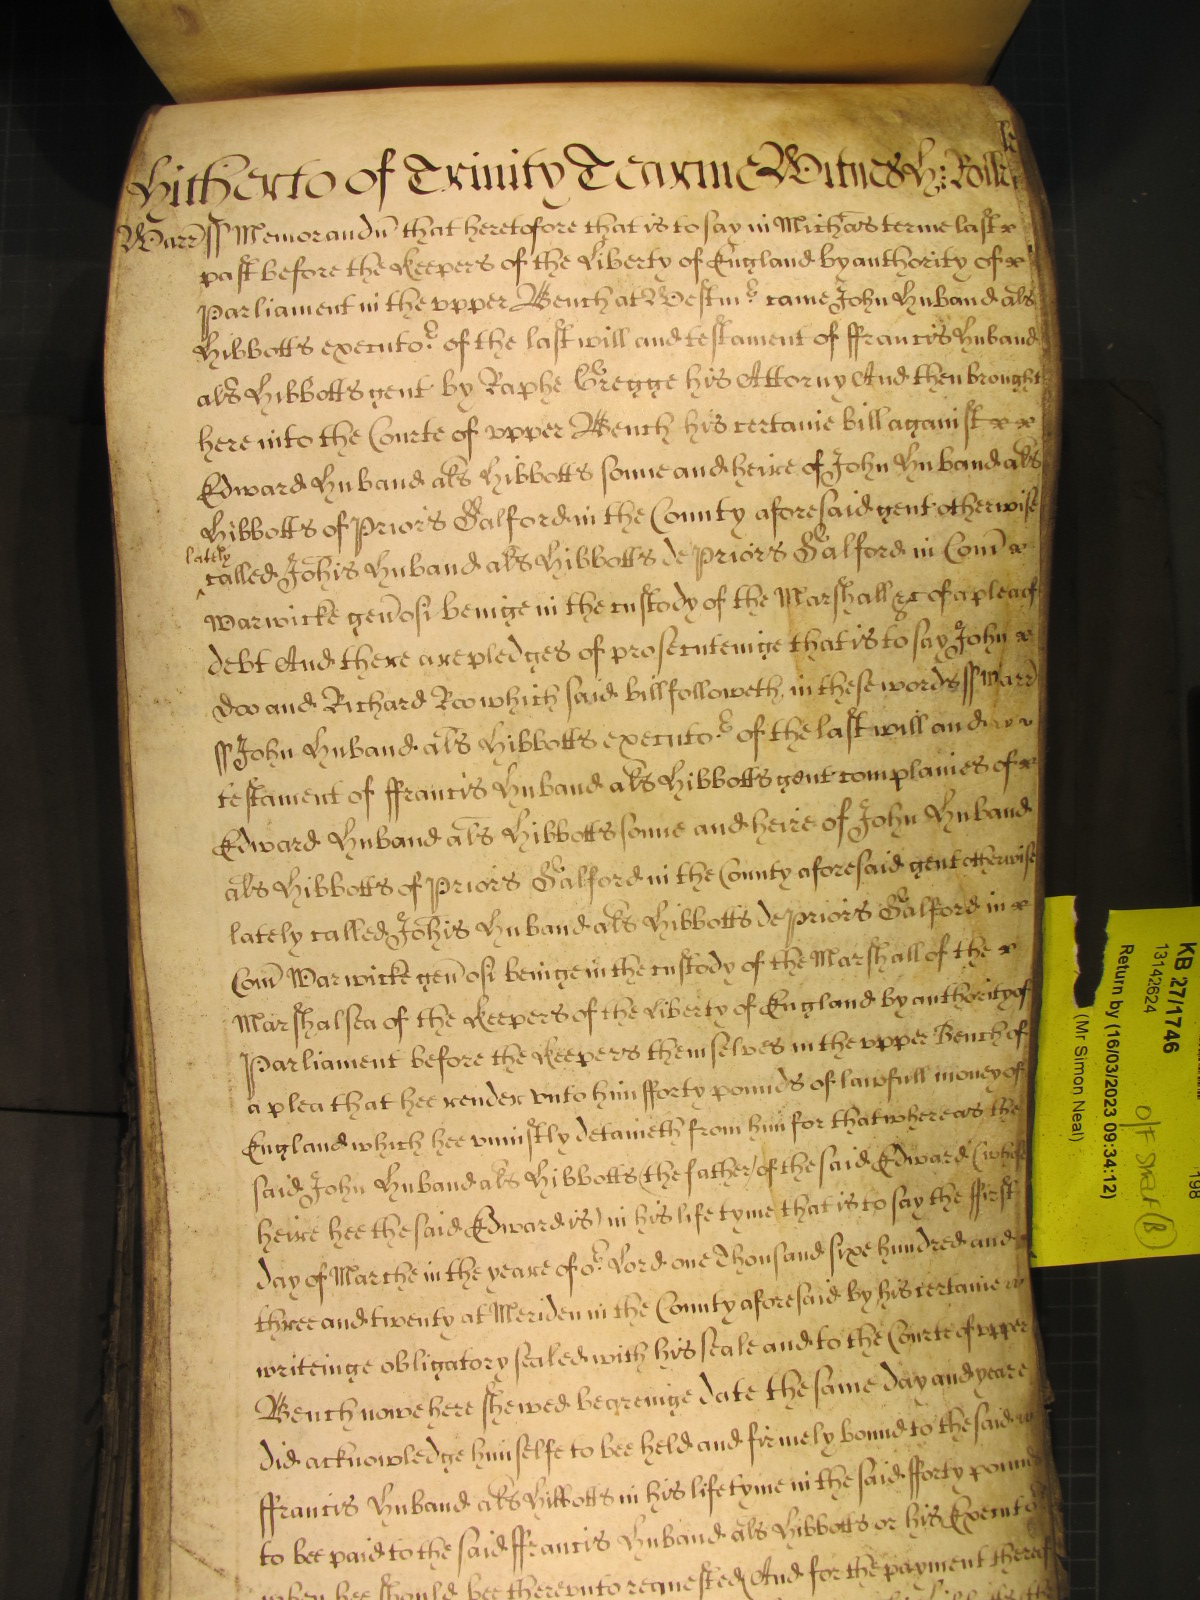 Hitherto of Trinity Tearme Witnes H: Rolle
Warr ss Memorandu that heretofore that is to say in Michas terme last
past before the Keepers of the Liberty of England by authority of
Parliament in the upper Bench at Westmr came John Huband als
Hibbotts executor of the last will and testament of ffrancis Huband
als Hibbotts gent by Raphe Gregge his Attorny And then brought
here into the Courte of upper Bench his certaine bill against
Edward Huband als Hibbotts sonne and heire of John Huband als
Hibbotts of Priors Salford in the County aforesaid gent otherwise
lately
called Johis Huband als Hibbotts de Priors Salford in Com
Warwicke genosi beinge in the custody of the Marshall &c of a plea of
debt And there are pledges of prosecuteinge that is to say John
Doo and Richard Roo which said bill followeth in these words ss Warr
ss John Huband als Hibbotts executor of the last will and
testament of ffrancis Huband als Hibbotts gent complaines of
Edward Huband als Hibbotts sonne and heire of John Huband
als Hibbotts of Priors Salford in the County aforesaid gent otherwise
lately called Johis Huband als Hibbotts de Priors Salford in
Com Warwicke genosi beinge in the custody of the Marshall of the
Marshalsea of the Keepers of the Liberty of England by authority of
Parliament before the Keepers themselves in the upper Bench of
a plea that hee render unto him fforty pounds of lawfull money of
England which hee uniustly detaineth from him for that whereas the
said John Huband als Hibbotts (the father) of the said Edward (whose
heire hee the said Edward is) in his life tyme that is to say the ffirst
day of Marche in the yeare of or Lord one Thousand sixe hundred and
three and twenty at Meriden in the County aforesaid by his certaine
writeinge obligatory sealed with his seale and to the Courte of upper
Bench nowe here shewed beareinge date the same day and yeare
did acknowledge himselfe to bee held and firmely bound to the said
ffrancis Huband als Hibbotts in his life tyme in the said fforty pound
to bee paid to the said ffrancis Huband als Hibbotts or his Executo
when hee should bee thereunto requested And for the payment thereof
KB 27/1746
13142624
Return by (16/03/2023 09:34:12)
(Mr Simon Neal)